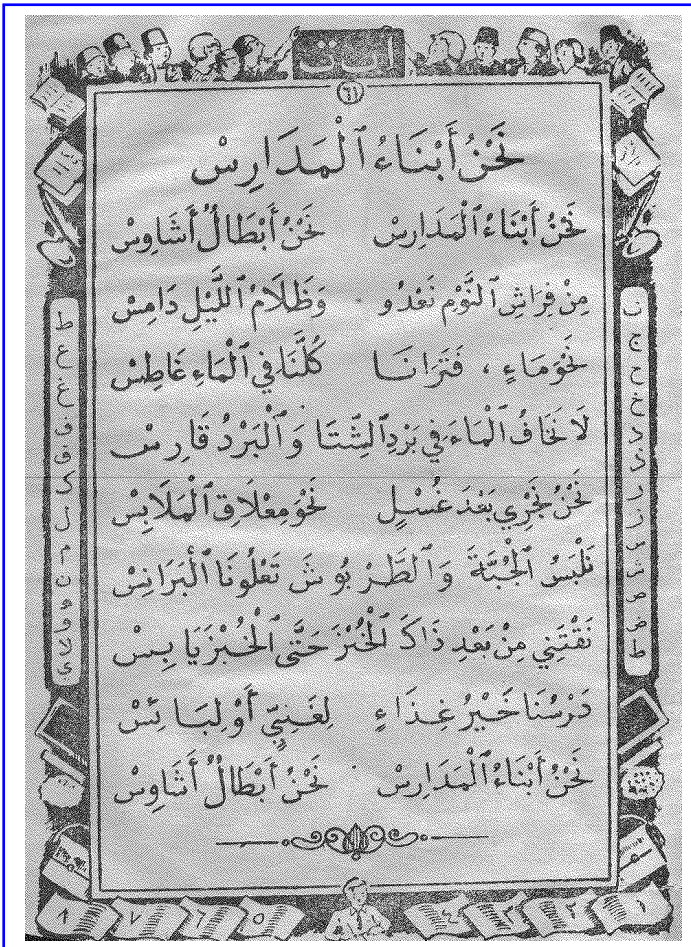 أ ب ت
٦١
نَحْنُ أَبْنَاءُ ٱلْمَدَارِسْ
نَحْنُ أَبْنَاءُ ٱلْمَدَارِسْ نَحْنُ أَبْطَالٌ أَشَاوِسْ
مِنْ فِرَاشِ ٱلنَّوْمِ نَعْدُو وَظَلَامُ اللَّيْلِ دَامِسْ
نَحْوَ مَاءٍ ، فَتَرَانَا كُلُّنَا فِي ٱلْمَاءِ غَاطِسْ
لَا نَخَافُ ٱلْمَاءَ فِي بَرْدِ ٱلشِّتَا وَٱلْبَرْدُ قَارِسْ
نَحْنُ نَجْرِي بَعْدَ غُسْلٍ نَحْوَ مِعْلَاقِ ٱلْمَلَابِسْ
نَلْبَسُ ٱلْجُبَّةَ وَٱلطَّرْبُوشَ تَعْلُونَا ٱلْبَرَانِسْ
نَقْتَنِي مِنْ بَعْدِ ذَاكَ ٱلْخُبْزَ حَتَّى ٱلْخُبْزَ يَابِسْ
دَرْسُنَا خَيْرُ غِذَاءٍ لِغَنِيٍّ أَوْ لِبَائِسْ
نَحْنُ أَبْنَاءُ ٱلْمَدَارِسْ نَحْنُ أَبْطَالٌ أَشَاوِسْ
ت
ج
ح
خ
د
ذ
ر
ز
س
ش
ص
ض
ط
ط
ع
غ
ف
ق
ك
ل
م
ن
ه
و
لا
ي
١ ٢ ٣ ٤ ٥ ٦ ٧ ٨